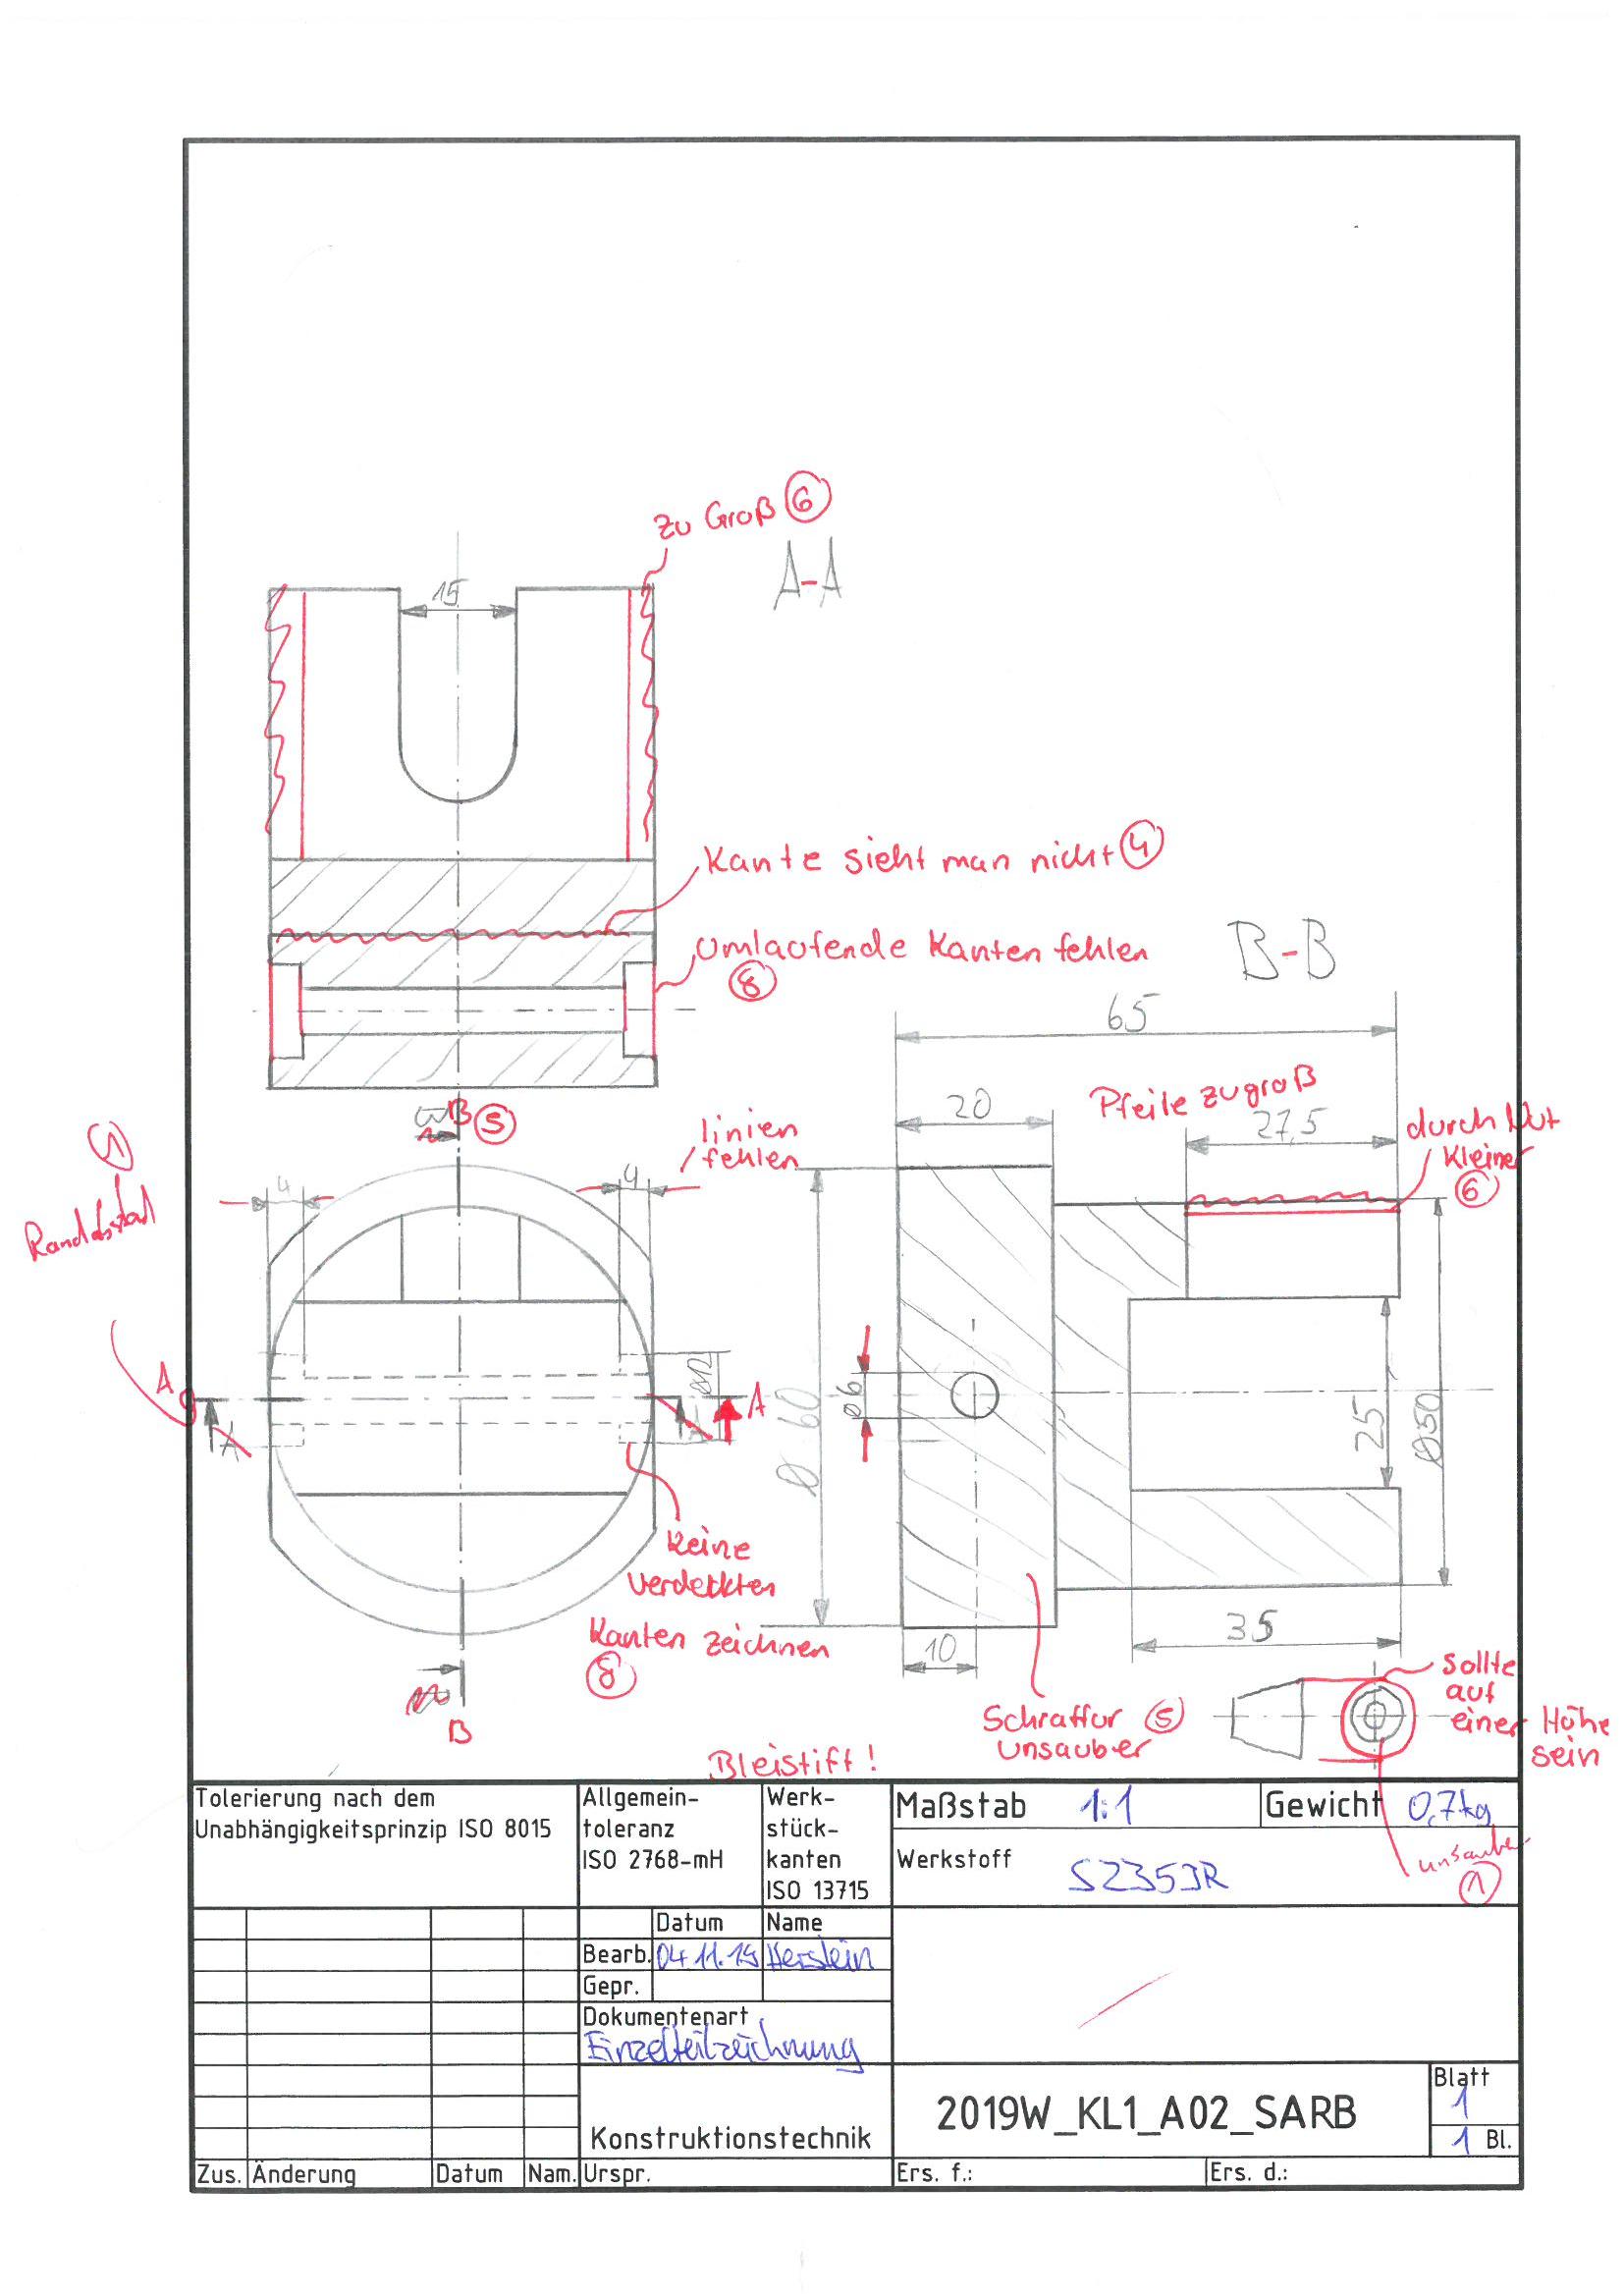 zu Groß 6
A-A
15
Kante sieht man nicht 4
Umlaufende Kanten fehlen
8
B-B
65
Pfeile zu groß
20
27,5
durch Nut
kleiner
6
B 5
linien
fehlen
4
4
1
Randabstand
A
A
A
⌀12
⌀6
⌀ 60
25
⌀50
keine
verdeckten
Kanten zeichnen
8
10
35
B
Schraffur 5
unsauber
Sollte
auf
einer Höhe
sein
Bleistift!
Tolerierung nach dem
Unabhängigkeitsprinzip ISO 8015
Allgemein-
toleranz
ISO 2768-mH
Werk-
stück-
kanten
ISO 13715
Maßstab 1:1
Gewicht 0,7kg
Werkstoff S235JR
unsauber
1
Datum Name
Bearb. 04.11.19 Herstein
Gepr.
Dokumentenart
Einzelteilzeichnung
Konstruktionstechnik
2019W_KL1_A02_SARB
Blatt
1
1 Bl.
Zus. Änderung Datum Nam. Urspr. Ers. f.: Ers. d.: